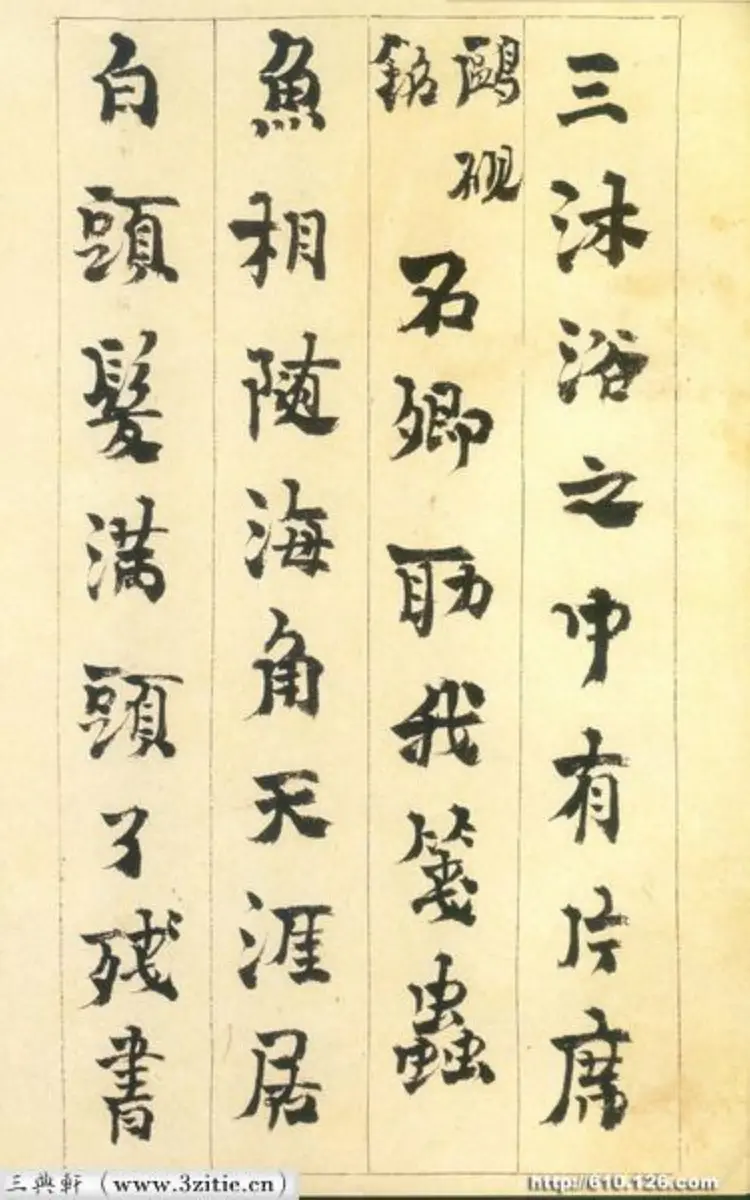 三沐浴之中有片席
鷗硯銘 石卿助我箋蟲
魚相随海角天涯居
白頭髮满頭了残書
三典軒（www.3zitie.cn）
http://610.126.com